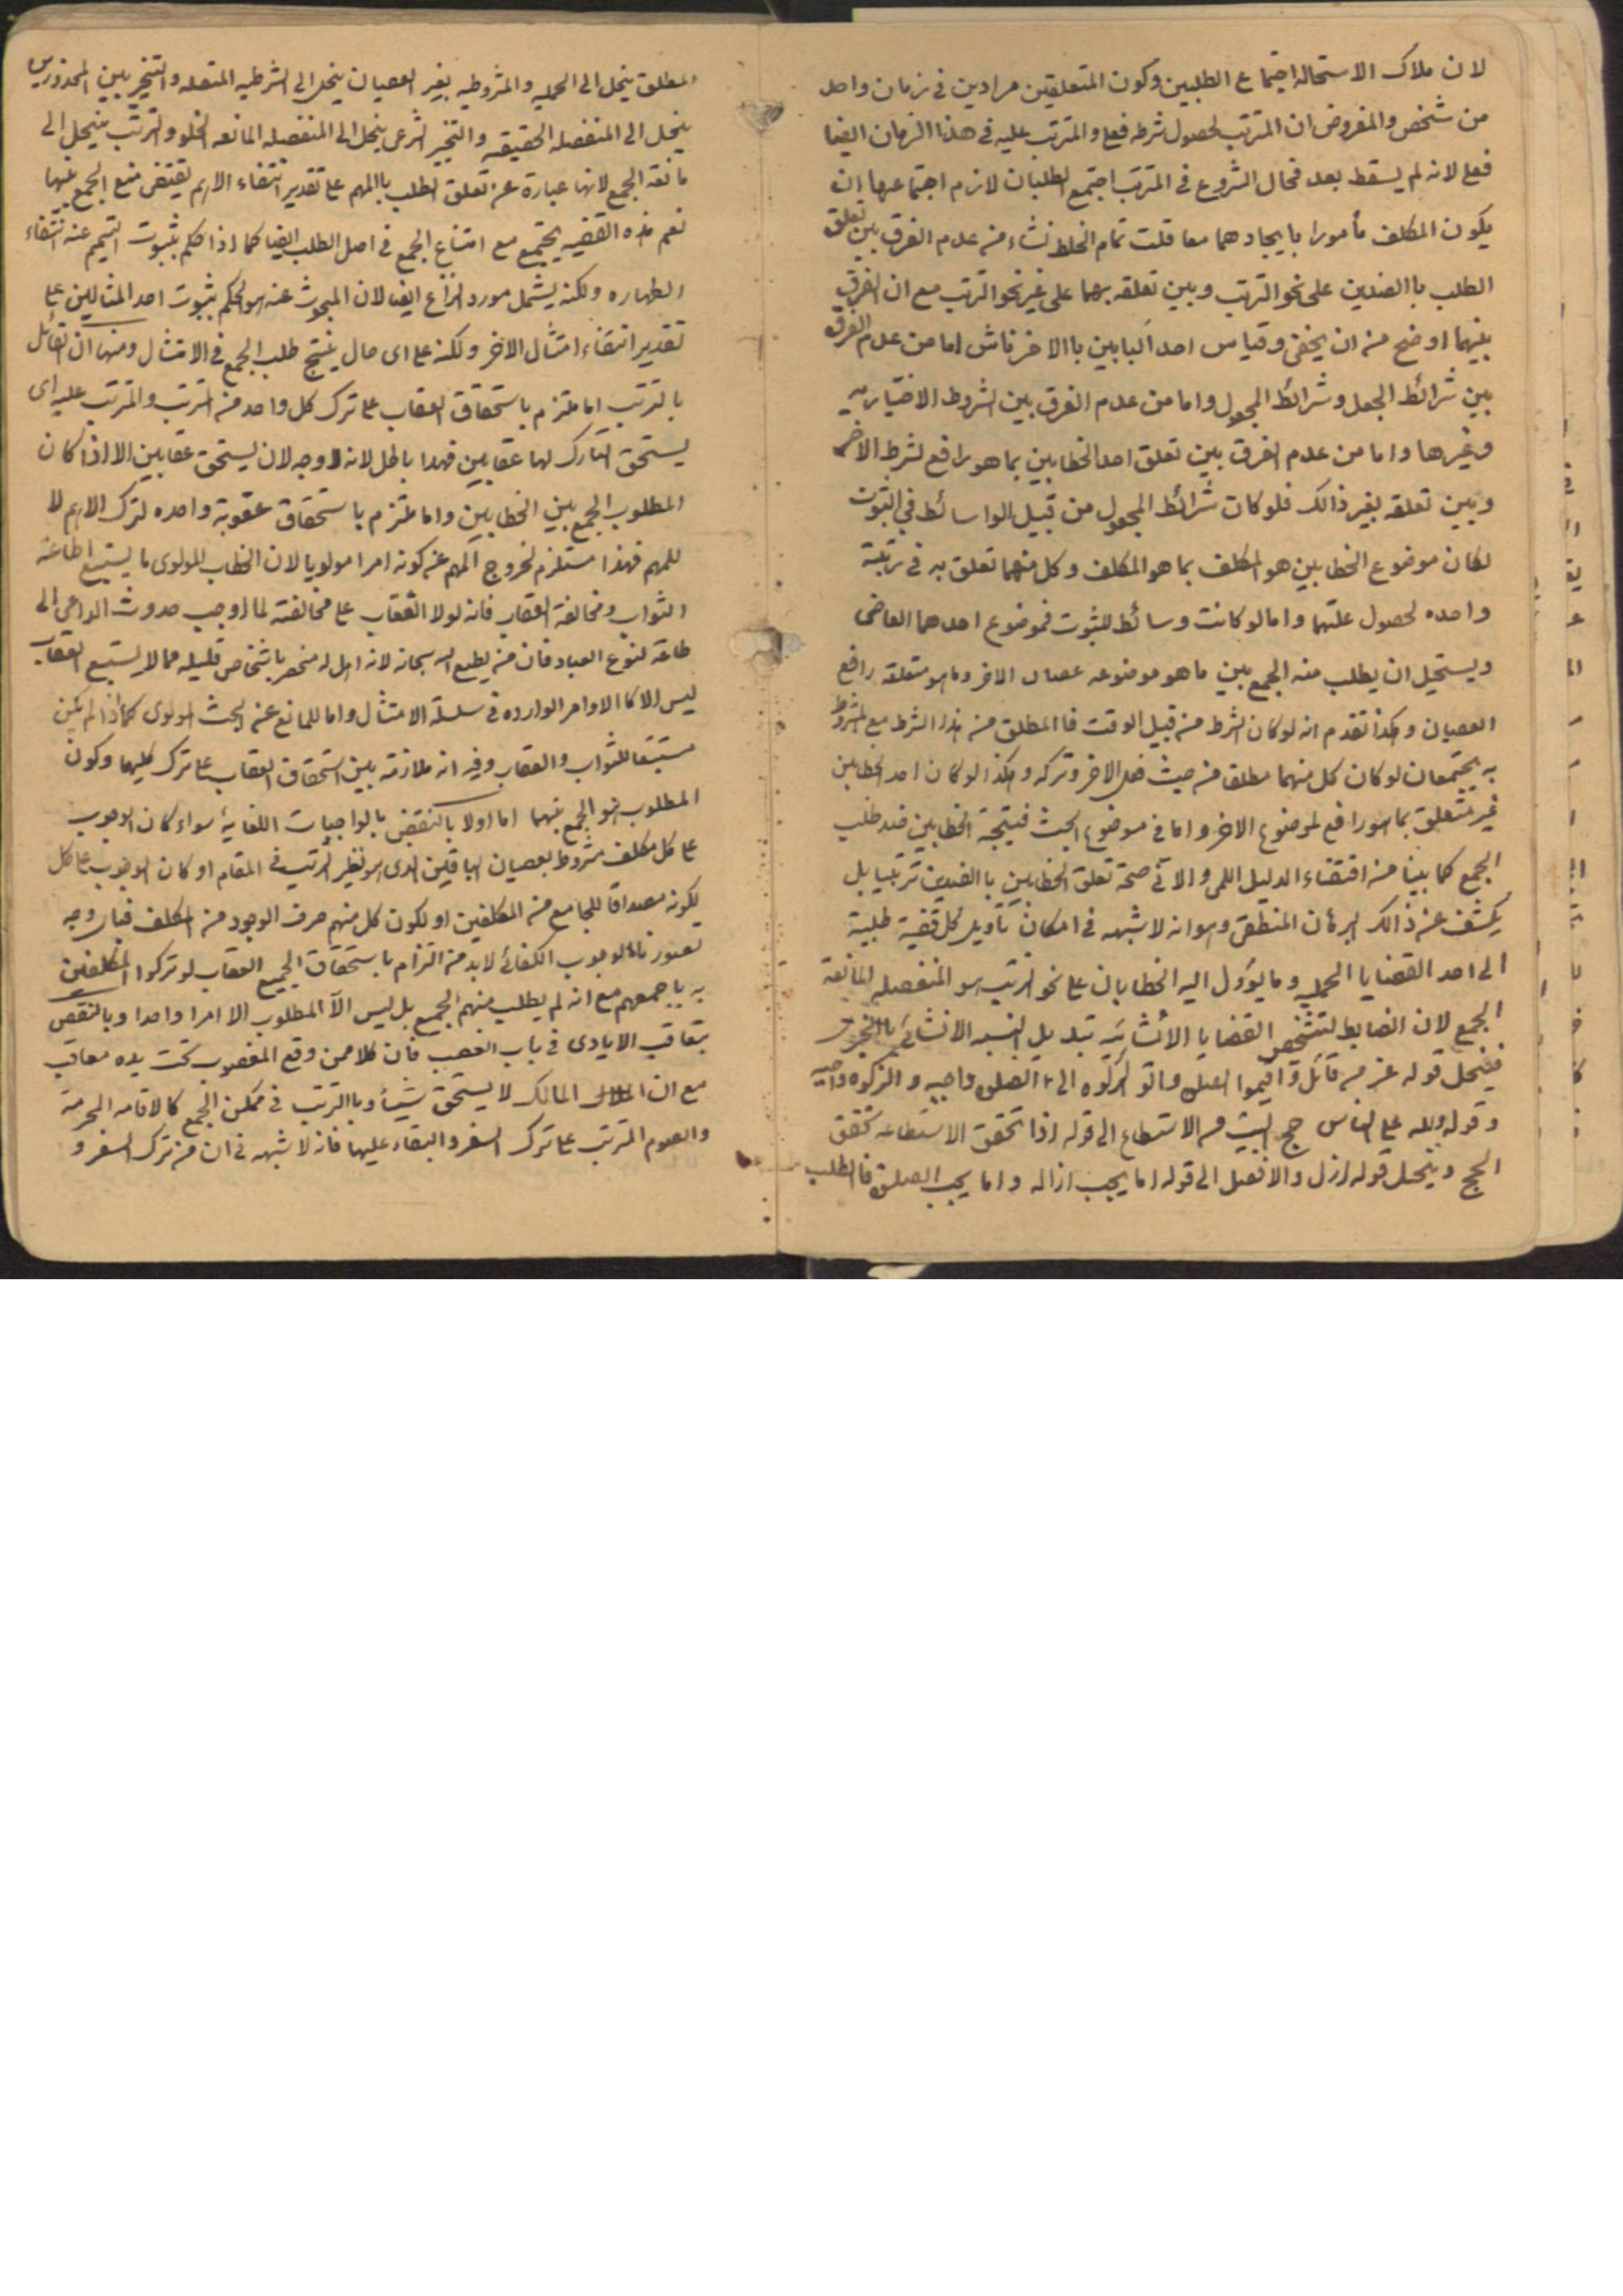 لان ملاک الاستحاله اجتماع الطلبین وکون المتعلقین مرادین فی زمان واحد
من شخص والمفروض ان المترتب لحصول شرطه فعلی والمترتب علیه فی هذا الزمان ایضا
فعلی لانه لم یسقط بعد فحال الشروع فی المترتب اجتمع الطلبان لازم اجتماعهما ان
یکون المکلف مأمورا بایجادهما معا قلت تمام الخلط نشاء من عدم الفرق بین تعلق
الطلب باالضدین علی نحو الترتب وبین تعلقه بهما علی غیر نحو الترتب مع ان الفرق
بینهما اوضح من ان یخفی وقیاس احد البابین باالاخر ناش اما من عدم الفرق
بین شرائط الجعل وشرائط المجعول واما من عدم الفرق بین الشروط الاختیاریه
وغیرها واما من عدم الفرق بین تعلق احد الخطابین بما هو رافع لشرط الاخر
وبین تعلقه بغیر ذالک فلو کان شرائط المجعول من قبیل الواسائط فی الثبوت
لکان موضوع الخطابین هو المکلف بما هو المکلف وکل منهما تعلق به فی رتبة
واحده لحصول علتهما واما لو کانت وسائط للثبوت فموضوع احدهما العاصی
ویستحیل ان یطلب منه الجمع بین ما هو موضوعه عصیان الاخر وما هو متعلقه رافع
العصیان وکذا تقدم انه لو کان الشرط من قبیل الوقت فاالمطلق من هذا الشرط مع المشروط
به یجتمعان لو کان کل منهما مطلقا من حیث فعل الاخر وترکه وهکذا لو کان احد الخطابین
غیر متعلق بما هو رافع لموضوع الاخر واما فی موضوع البحث فنتیجة الخطابین ضد طلب
الجمع کما بینا من اقتضاء الدلیل اللمی والانی صحة تعلق الخطابین باالضدین ترتبیا بل
یکشف عن ذالک البرهان المنطقی وهو انه لا شبهه فی امکان تأویل کل قضیة طلبیة
الی احد القضایا الحملیه وما یؤول الیه الخطابان علی نحو الترتب هو المنفصله المانعة
الجمع لان الضابط لتشخص القضایا الأنشائیه تبدیل النسبه الانشائی باالخبریة
فینحل قوله عز من قائل واقیموا الصلوة واتو الزکوه الی الصلوة واجبه والزکوه واجبه
وقوله ولله علی الناس حج البیت من الاستطاع الی قوله اذا تحقق الاستطاعه تحقق
الحج وینحل قوله ازل والا فصل الی قوله اما یجب ازاله واما یجب الصلوة فاالطلب
المطلق ینحل الی الحملیه والمشروطیه بغیر العصیان ینحل الی الشرطیه المتصله والتخییر بین المحذورین
ینحل الی المنفصله الحقیقه والتخییر الشرعی ینحل الی المنفصله المانعه الخلو والترتب ینحل الی
مانعة الجمع لانها عبارة عن تعلق الطلب باالمهم علی تقدیر انتفاء الاهم یقتضی منع الجمع بینهما
نعم هذه القضیه یجتمع مع امتناع الجمع فی اصل الطلب ایضا کما اذا حکم بثبوت التیمم عند انتفاء
الطهاره ولکنه لیشمل مورد النزاع ایضا لان المبحوث عنه هو الحکم بثبوت احد المثالین علی
تقدیر انتفاء امتثال الاخر ولکنه علی ای حال ینتج طلب الجمع فی الامتثال ومنها ان القائل
بالترتب اما ملتزم باستحقاق العقاب علی ترک کل واحد من الترتب والمترتب علیه ای
یستحق التارک لهما عقابین فهذا باطل لانه لا وجه لان یستحق عقابین الا اذا کان
المطلوب الجمع بین الخطابین واما ملتزم باستحقاق عقوبة واحده لترک الاهم لا
للمهم فهذا مستلزم لخروج المهم عن کونه امرا مولویا لان الخطاب المولوی ما یستتبع اطاعته
الثواب ومخالفته العقاب فانه لولا العقاب علی مخالفته لما اوجب حدوث الداعی الی
طاعة لنوع العباد فان من یطیع الله سبحانه لانه اهل له منحصر باشخاص قلیله مما لا یستتبع العقاب
لیس الا کاالاوامر الوارده فی سلسلة الامتثال واما للمانع عن البحث المولوی کما اذا لم یکن
مستتبعا للثواب والعقاب وفیه انه ملازمة بین استحقاق العقاب علی ترک کلیهما وکون
المطلوب هو الجمع بینهما اما اولا بالنقض بالواجبات الکفائیة سواء کان الوجوب
علی کل مکلف مشروط بعصیان الباقین الذی هو نظیر الترتب فی المقام او کان الوجوب علی کل
لکونه مصداقا للجامع من المکلفین او لکون کل منهم صرف الوجود من المکلف فبای وجه
تصور باالوجوب الکفائی لابد من التزام باستحقاق الجمیع العقاب لو ترکوا المکلفین
به باجمعهم مع انه لم یطلب منهم الجمیع بل لیس الا المطلوب الا امرا واحدا وبالنقض
بتعاقب الایادی فی باب الغصب فان کلا ممن وقع المغصوب تحت یده معاقب
مع ان المالک لا یستحق شیئا وباالترتب فی ممکن الجمع کالاقامه المحرمة
والصوم المترتب علی ترک السفر والبقاء علیها فانه لا شبهه فی ان من ترک السفر و